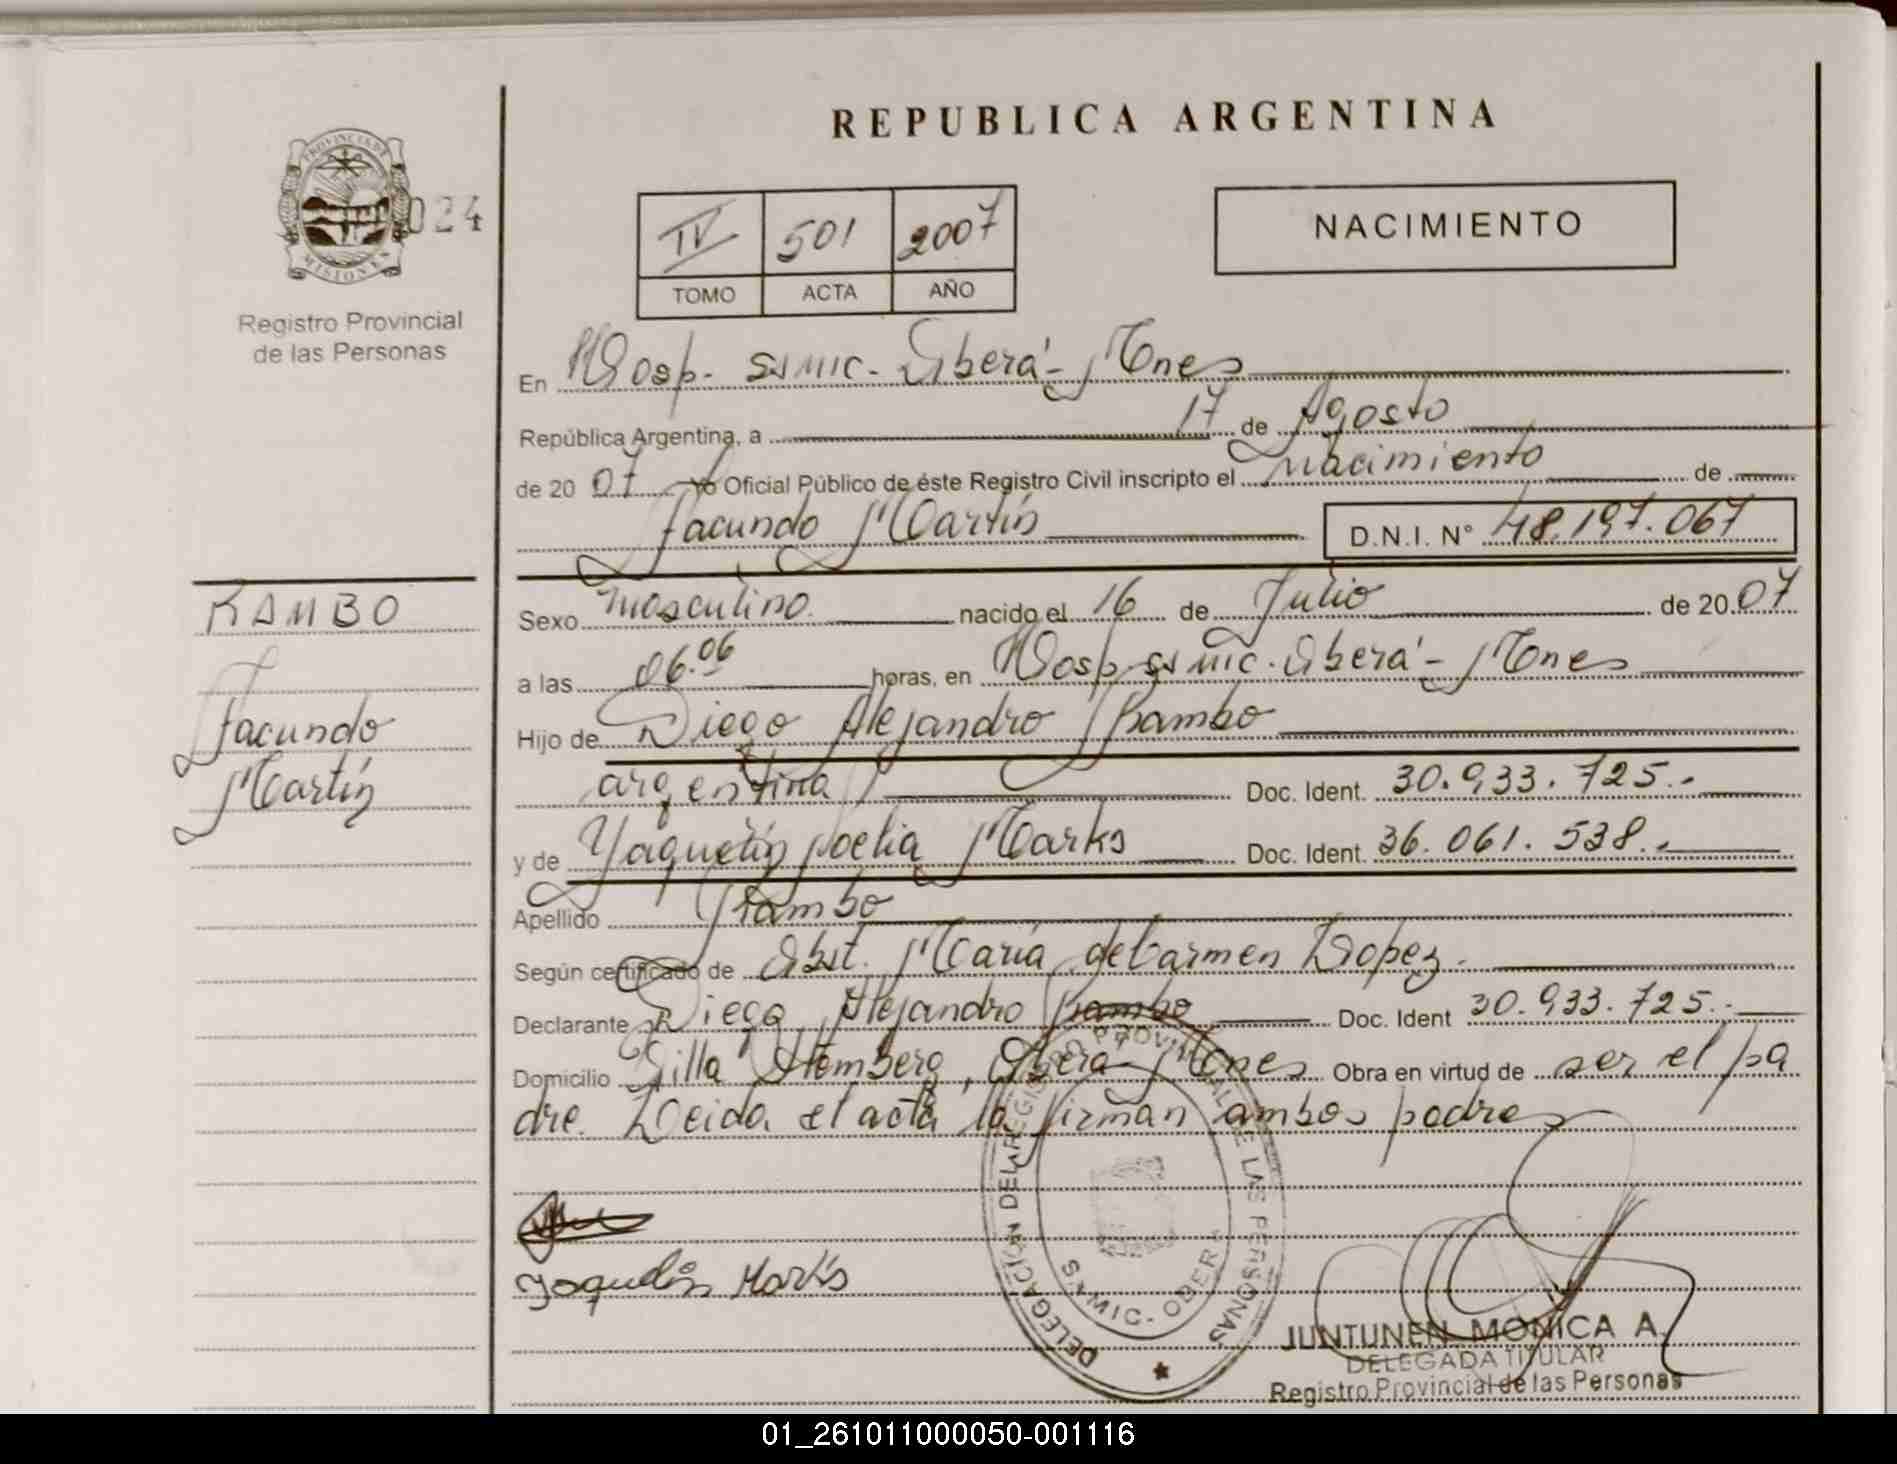 REPUBLICA ARGENTINA
PROVINCIA DE
MISIONES
024
Registro Provincial
de las Personas
IV 501 2007
TOMO ACTA AÑO
NACIMIENTO
En Hosp. SAMIC. Oberá - Mnes
República Argentina, a 17 de Agosto
de 2007 Yo Oficial Público de éste Registro Civil inscripto el nacimiento de
Facundo Martín D.N.I. N° 48.197.067
RAMBO
Facundo
Martín
Sexo masculino nacido el 16 de Julio de 2007
a las 06.06 horas, en Hosp. SAMIC. Oberá - Mnes
Hijo de Diego Alejandro Rambo
argentina Doc. Ident. 30.933.725.-
y de Yaquelin Noelia Marks Doc. Ident. 36.061.538.-
Apellido Rambo
Según certificado de Obst. María del Carmen Lopez.
Declarante Diego Alejandro Rambo Doc. Ident 30.933.725.-
Domicilio Villa Stemberg, Oberá - Mnes Obra en virtud de ser el pa
dre. Leida el acta la firman ambos padres
Yaquelin Marks
DELEGACIÓN DEL REGISTRO PROVINCIAL DE LAS PERSONAS
SAMIC - OBERA
JUNTUNEN MONICA A.
DELEGADA TITULAR
Registro Provincial de las Personas
01_261011000050-001116